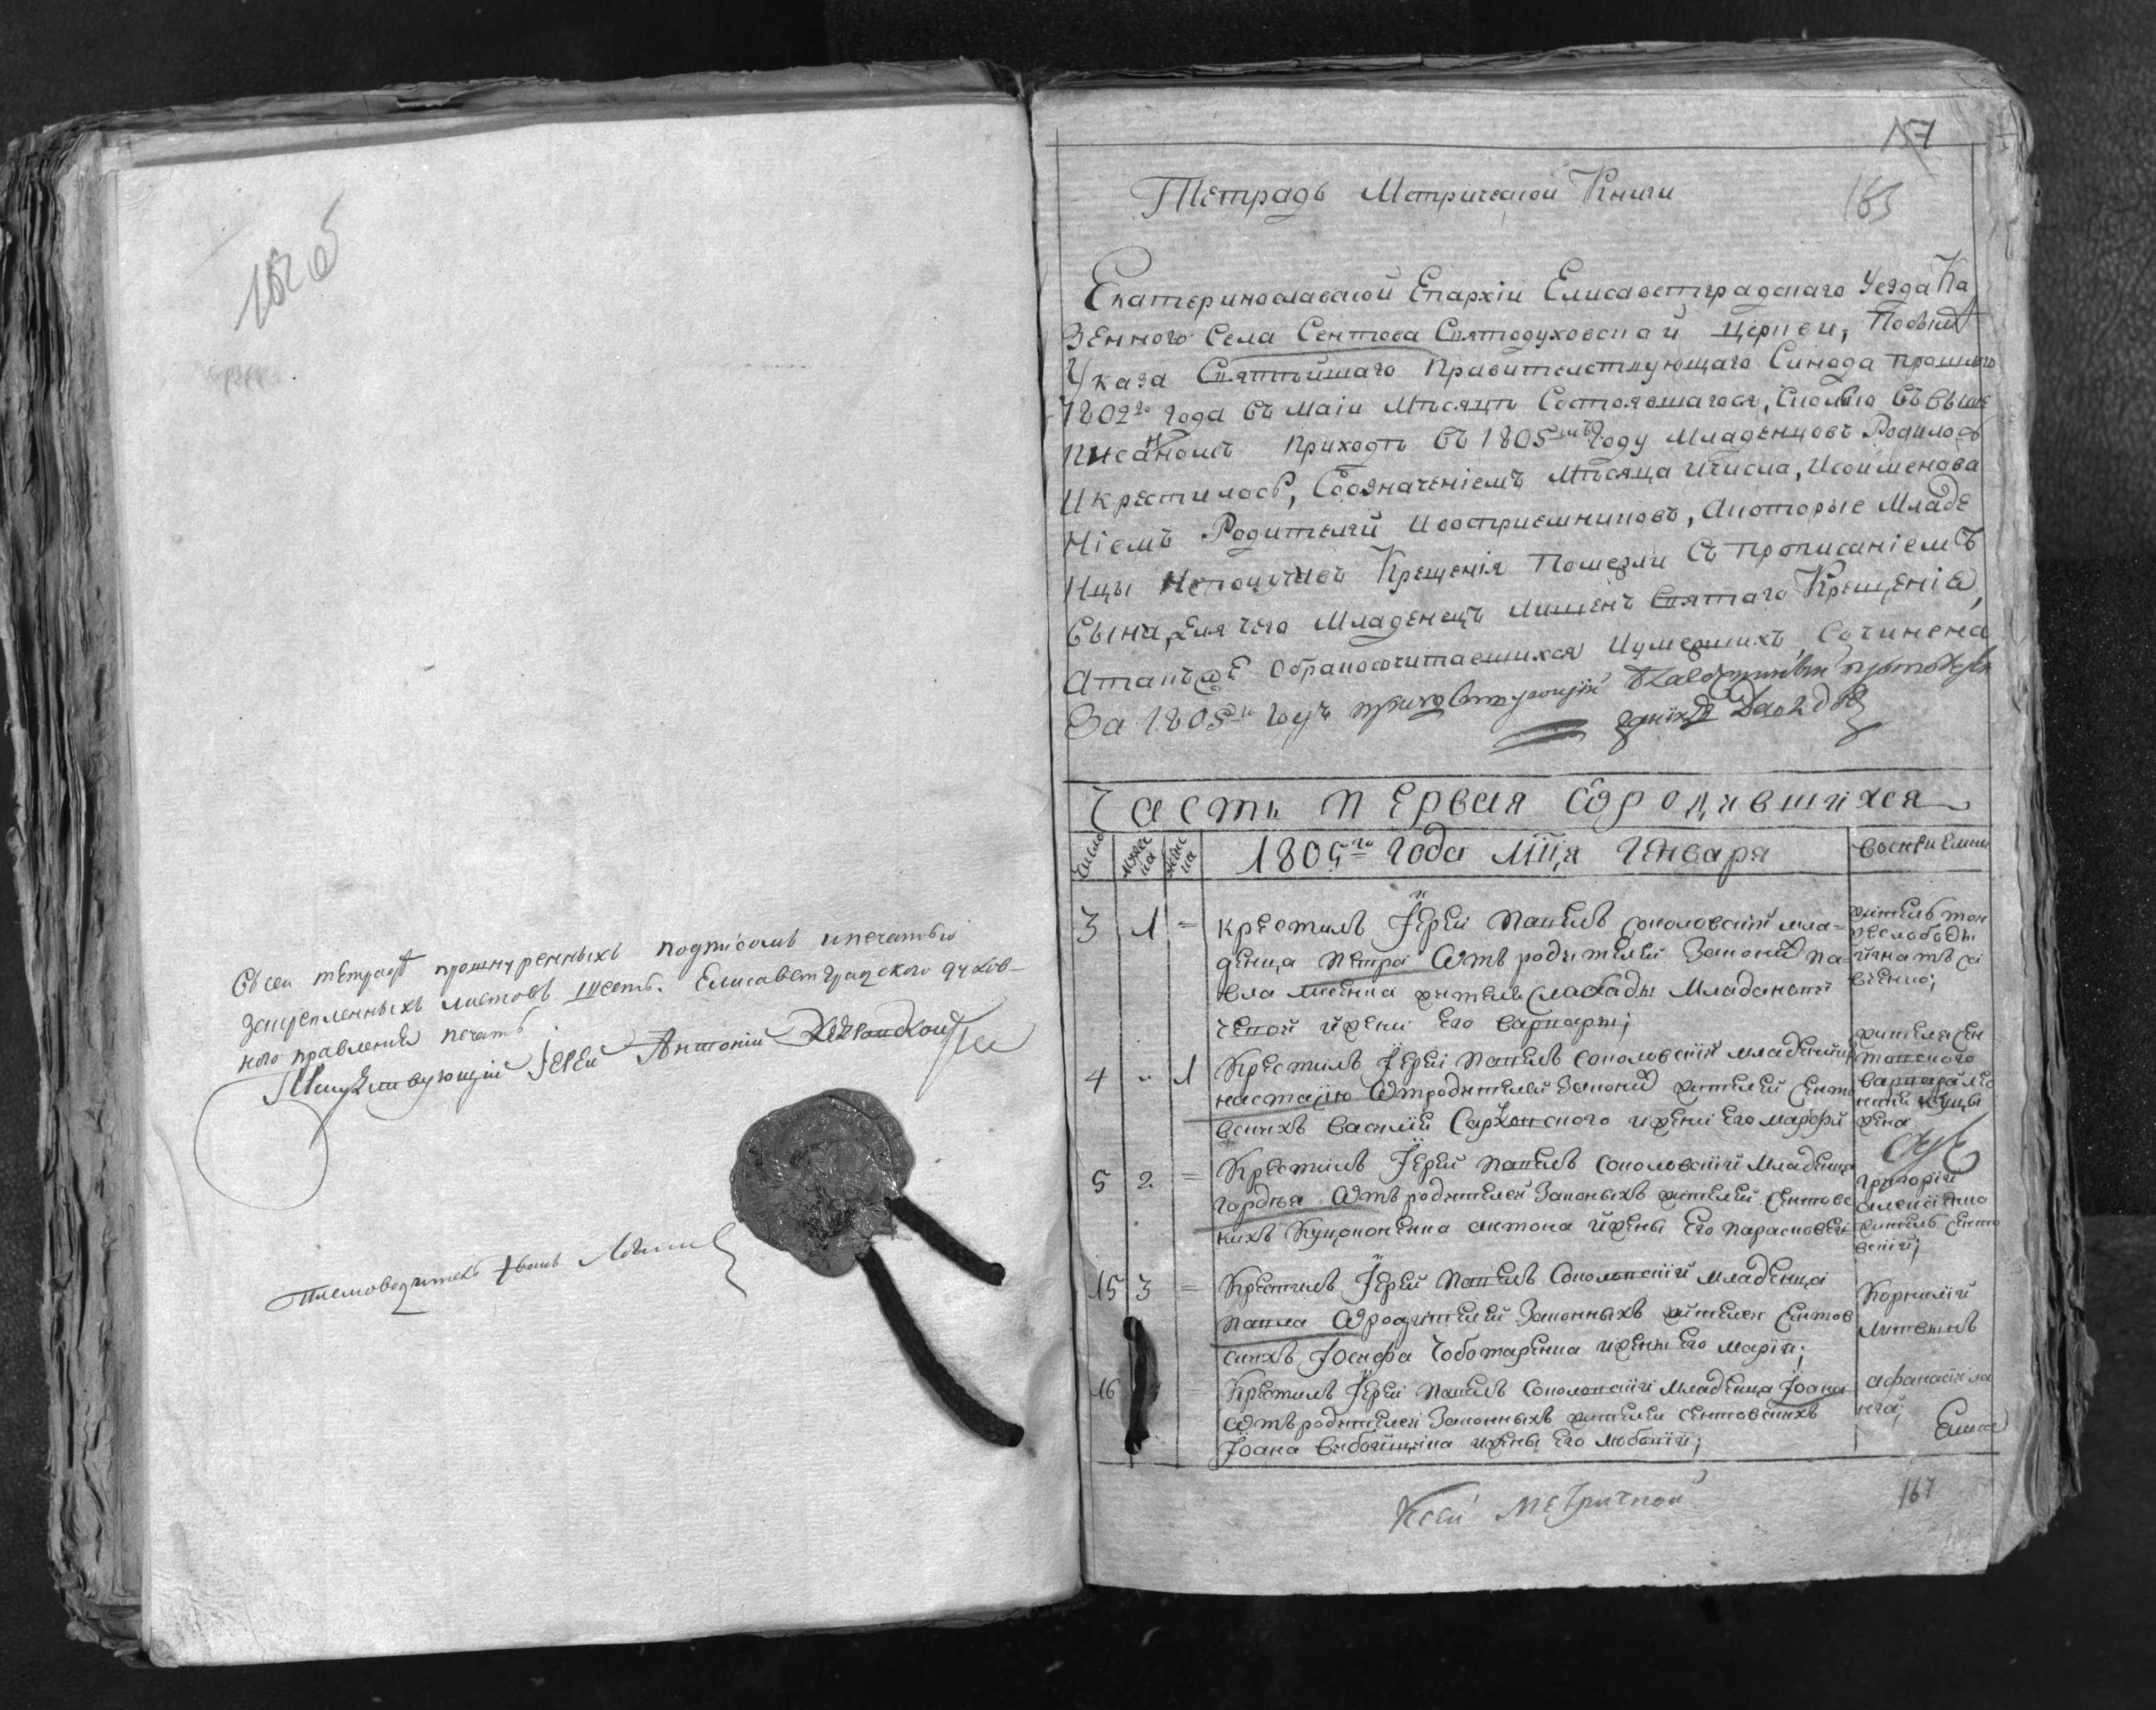 162 об
Въ сей тетраде прошнуренныхъ подписомъ и печатью
закрепленныхъ листовъ шесть. Елисаветградского духов-
ного правления печать
Присудствующий Иерей Антоний
Писмоводитель Иванъ
157
163
Тетрадь Метрической Книги
Екатеринославской Епархіи Елисаветградскаго Уезда Ка
зенного Села Сентова Святодуховской церкви, По силѣ
Указа Святѣйшаго Правителствующаго Синода прошлого
1802го года Въ маіи мѣсяцѣ Состоявшагося, Сколко Въ выше
писанномъ приходѣ Въ 1805мъ Году младенцовъ Родилось
и крестилось, Собозначеніемъ мѣсяца и числа, и соименова
ніемъ Родителей и восприемниковъ, а которые Младе
нцы Неполучивъ Крещенія Померли Съ прописаніемъ
Вина, для чего Младенецъ лишенъ Святаго Крещенія,
Атакъже обракосочитаешихся и умершихъ, Сочинена
За 1805й Годъ
Часть первая Ѡ родившихся
число
мужеска
женска
1805го года Мца Генваря
восприемни
3 1 = крестилъ Іерей Павелъ Соколовскій мла-
денца Петра Ѿтъ родителей Законых Па-
вла Лисенка жителя Слабоды
ческой и жени Его варвары;
житель тои
же слободы
4 " 1 Крестилъ Іерей Павелъ Соколовскій младенца
настасию Ѿтродителей Законых жителей Сенто
вскихъ василія Сарженского и жени Его марфы
жителя Сен
товского
жена
5 2 = Крестилъ Іерей Павелъ Соколовскій Младенца
гордѣя Ѿтъ родителей Законыхъ жителей Сентовс
кихъ Куцоконенка антона и жены Его Парасковеи
григорій
алексѣенко
житель Сенто
вскій;
15 3 = Крестилъ Іерей Павелъ Соколовскій Младенца
Павла Ѿ родителей Законныхъ жителей Сентов
скихъ Іосифа Чоботаренка и жены Его Маріи;
Корнилій
Литвинъ
16 = Крестилъ Іерей Павелъ Соколовскій Младенца Іоана
Ѿтъ родителей Законныхъ жителей Сентовскихъ
Іоана и жены Его Любовіи;
афанасій
Къ сей Метричной
167